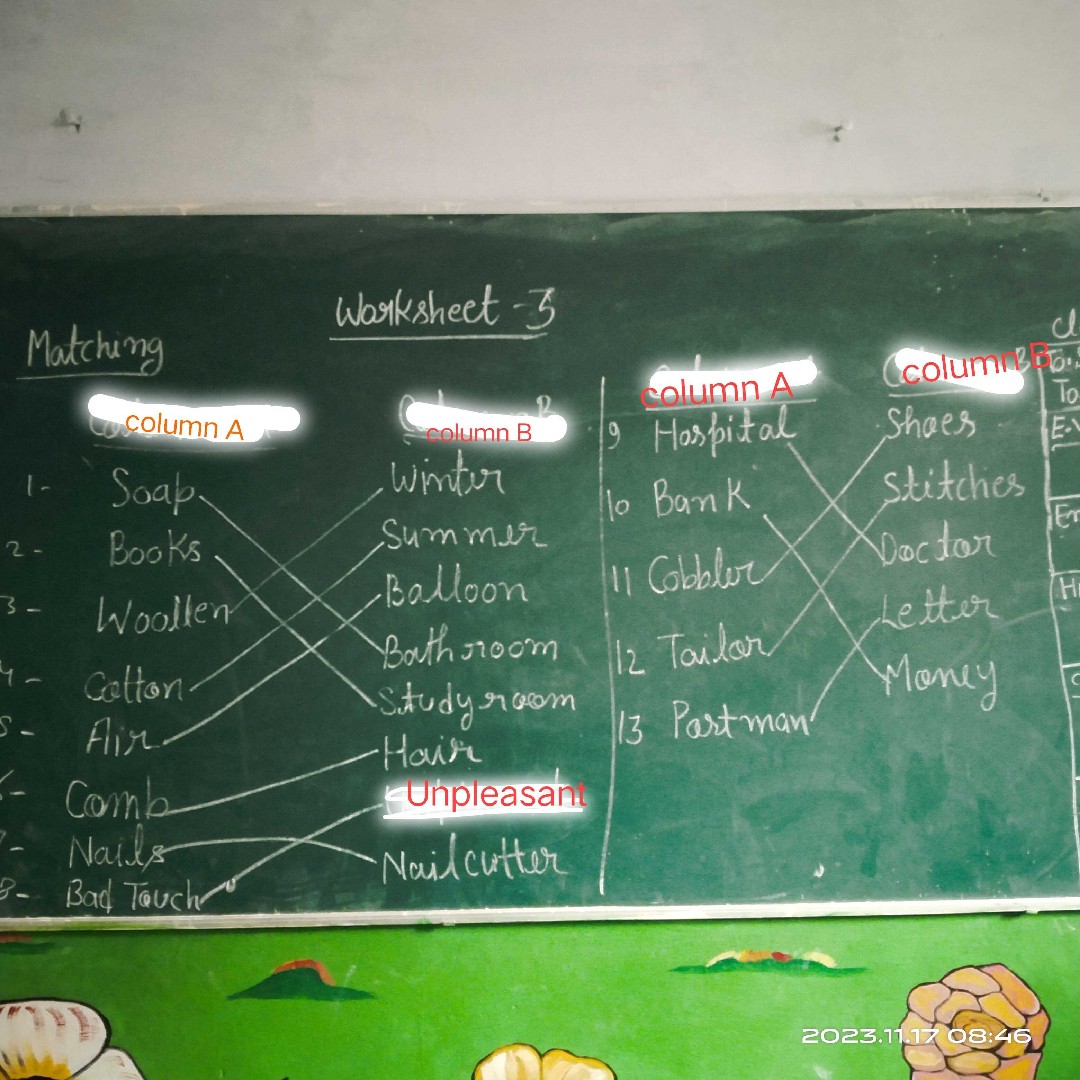 Worksheet - 5
Matching
column A
column B
1- Soap Winter
2- Books Summer
3- Woollen Balloon
4- Cotton Bathroom
5- Air Studyroom
6- Comb Hair
7- Nails Unpleasant
8- Bad Touch Nailcutter
column A
column B
9 Hospital Shoes
10 Bank Stitches
11 Cobbler Doctor
12 Tailor Letter
13 Postman Money
2023.11.17 08:46